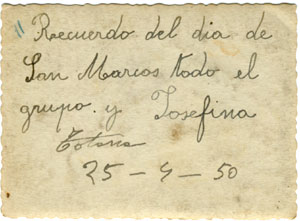 Recuerdo del dia de
San Marcos todo el
grupo. y Josefina
Totana
25 - 4 - 50